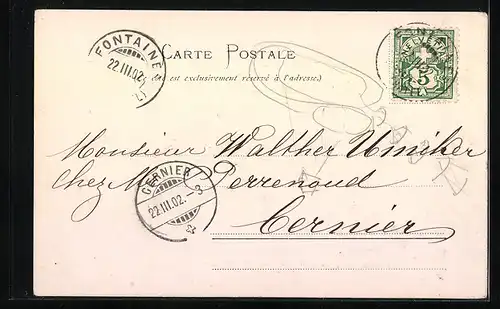 FONTAINE
22.III.02.
CARTE POSTALE
est exclusivement réservé à l'adresse.)
5
Monsieur Walther Umiker
Chez Mr Perrenoud
Cernier
CERNIER
22.III.02. - 3